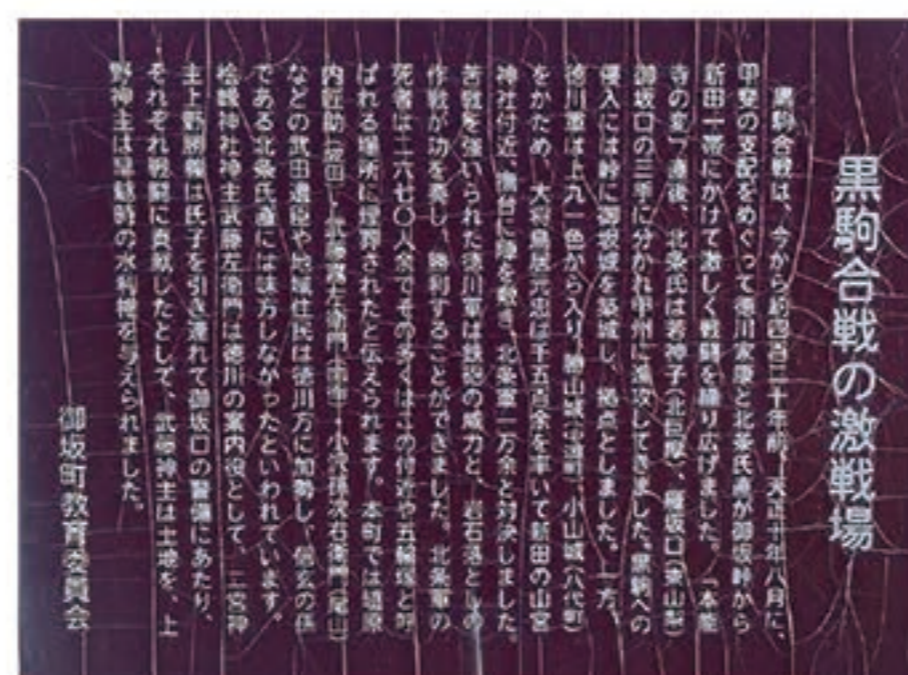 黒駒合戦の激戦場
黒駒合戦は、今から約四百二十年前、天正十年八月に、
甲斐の支配をめぐって徳川家康と北条氏直が御坂峠から
新田一帯にかけて激しく戦闘を繰り広げました。「本能
寺の変」直後、北条氏は若神子(北巨摩)、雁坂口(東山梨)
御坂口の三手に分かれ甲州に進攻してきました。黒駒への
侵入には峠に御坂城を築城し、拠点としました。一方、
徳川軍は上九一色から入り、勝山城(中道町)小山城(八代町)
をかため、大将鳥居元忠は千五百余を率いて新田の山宮
神社付近、 台に陣を敷き、北条軍一万余と対決しました。
苦戦を強いられた徳川軍は鉄砲の威力と、岩石落としの
作戦が功を奏し、勝利することができました。北条軍の
死者は二六七〇人余でその多くはこの付近や五輪塚と呼
ばれる場所に埋葬されたと伝えられます。本町では
内匠助 、武藤 左衛門 、小沢 右衛門(尾山)
などの武田遺臣や地域住民は徳川方に加勢し、信玄の孫
である北条氏直には味方しなかったといわれています。
桧峰神社神主武藤左衛門は徳川の案内役として、二宮神
主上野勝 は氏子を引き連れて御坂口の警備にあたり、
それぞれ戦闘に貢献したとして、武藤神主は土地を、上
野神主は旱魃時の水利権を与えられました。
御坂町教育委員会